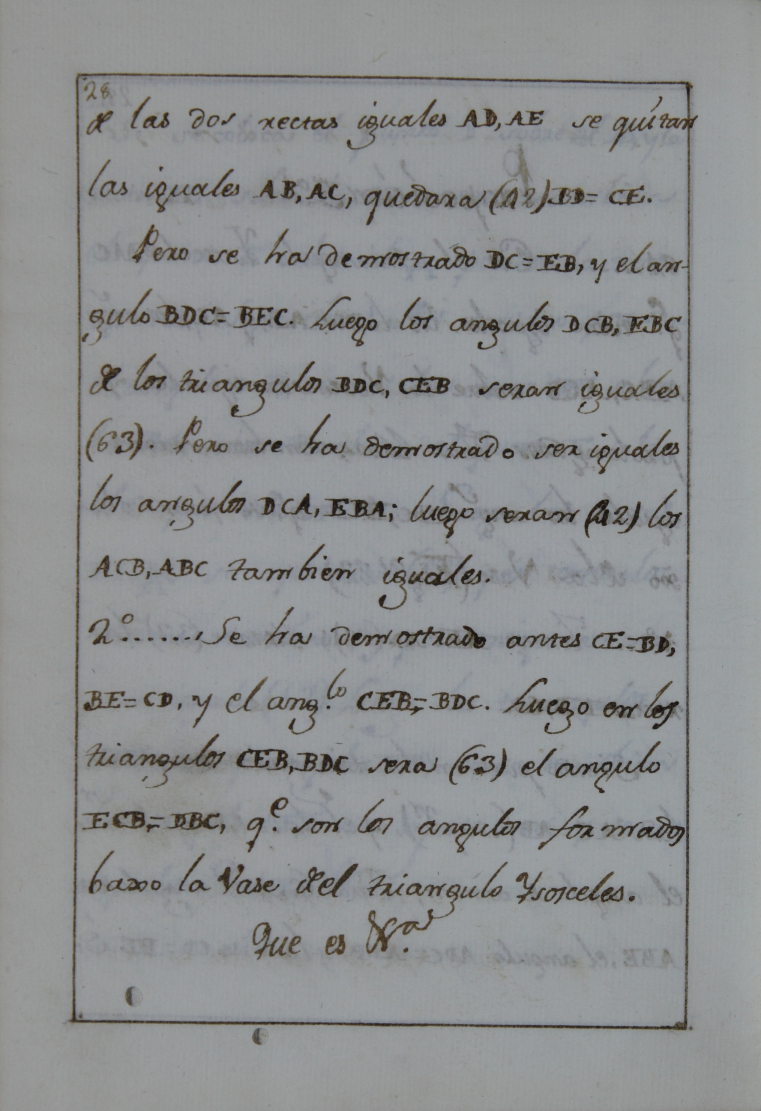 28
de las dos rectas iguales AD, AE se quitan
las iguales AB, AC, quedara (42) BD= CE.
Pero se ha demostrado DC=EB, y el an-
gulo BDC= BEC. Luego los angulos DCB, EBC
de los triangulos BDC, CEB seran iguales
(63). Pero se ha demostrado ser iguales
los angulos DCA, EBA; luego seran (42) los
ACB, ABC tambien iguales.
2º....... Se ha demostrado antes CE=BD,
BE= CD, y el ang.lo CEB,= BDC. Luego en los
triangulos CEB, BDC sera (63) el angulo
ECB,= DBC, q.e son los angulos formados
baxo la Vase del triangulo Ysosceles.
Que es